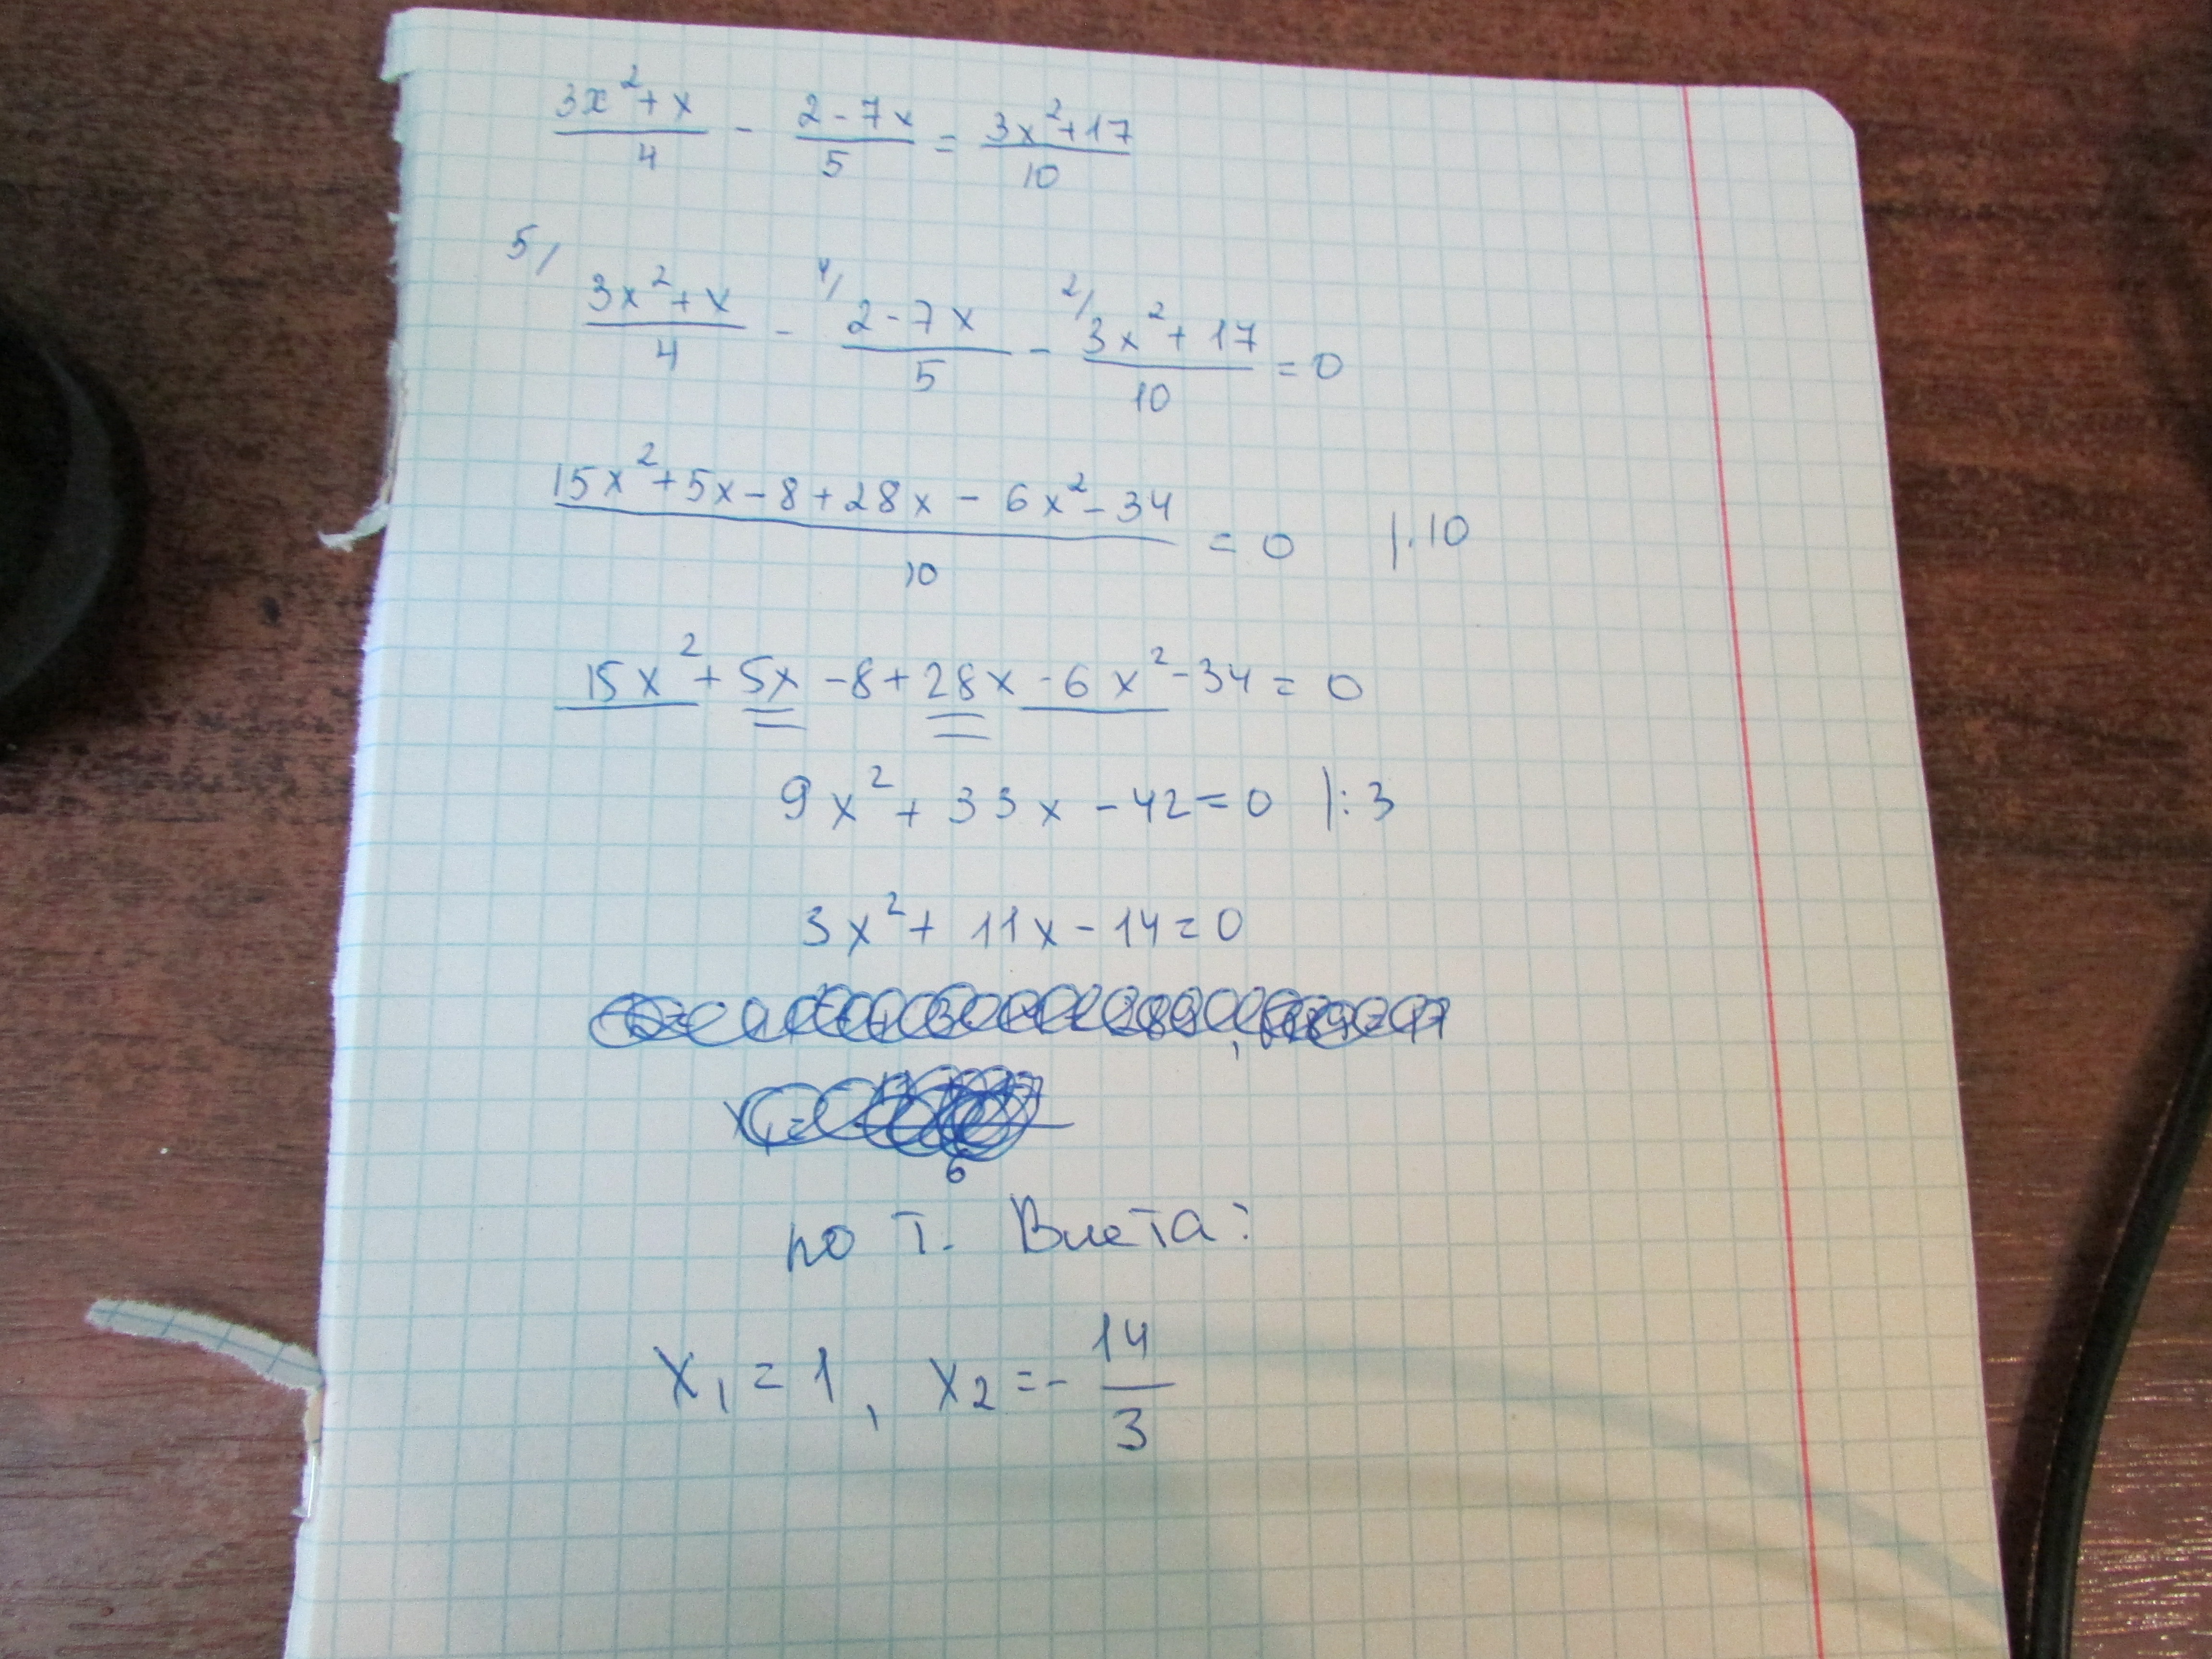 (3x²+x)/4 - (2-7x)/5 = (3x²+17)/10
5/ (3x²+x)/4 - 4/ (2-7x)/5 - 2/ (3x²+17)/10 = 0
(15x²+5x-8+28x-6x²-34)/10 = 0 |·10
15x²+5x-8+28x-6x²-34=0
9x²+33x-42=0 |:3
3x²+11x-14=0
6
по т. Виета:
x₁=1, x₂=-14/3